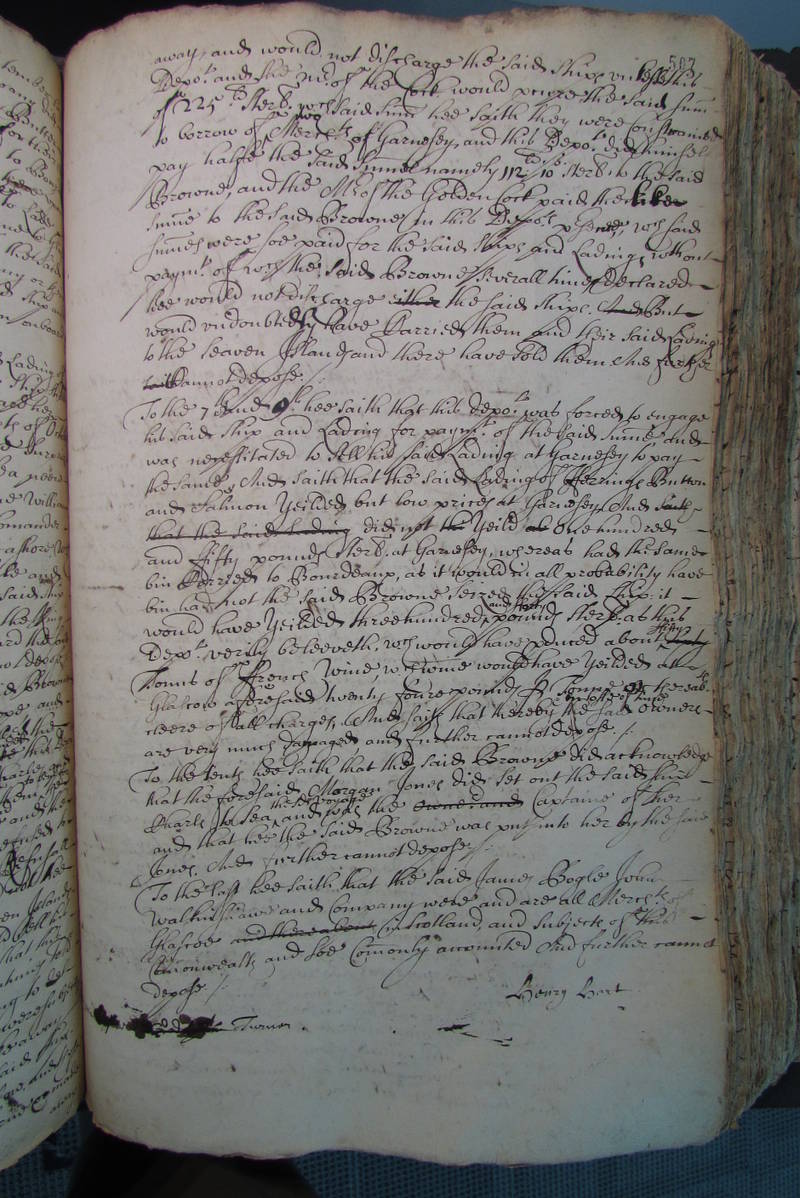 507
away, and would not discharge the said ships unlesse this
Depo.t and the M.r of the Cock would procure the said Sum̄e
of 225 li Sterl. w.ch said Sum̄e hee saith they were Constrained
to borrow of two Merch.ts of Garnesey, and this Depo.t did himselfe
pay halfe the said Sum̄e namely 112 li 10 s Sterl.s to the said
Browne, and the M.r of the Golden Cock paid the like
Sum̄e to the said Browne in this Depo.ts p̄sence, w.ch said
Sum̄es were soe paid for the said Ships and Lading, without
paym.t of w.ch the said Browne severall times declared
hee would not discharge either the said ships. And But
would undoubtedly have Carried them and their said Lading
to the Seaven Islands and there have sold them. And further
cannot depose ./
To the 7.th and 9.th hee saith that this depo.t was forced to engage
his said ship and Lading for paym.t of the said Sum̄e and
was necessitated to sell his said Lading at Garnesey to pay
the same, And saith that the said Lading of Herrings Button
and Salmon Yeilded but low prices at Garnesey, And saith
that the said Lading did not the Yeild as One hundred
and fifty pounds Sterl. at Garnesey, whereas had the same
bin Carried to Bourdeaux, as it would in all probability have
bin had not the said Browne seized the said Ship: it
would have Yeilded three hundred and forty pounds Sterl. as this
Depo.t verily beleeveth, w.ch would have produced about fifty
Tonns of French Wine, w.ch wine would have Yeilded at
Glascow aforesaid twenty foure pounds p̄ Tonne or thereab.ts
cleere of all charges, And saith that thereby the said owners
are very much damaged, and further cannot depose. /.
To the tenth hee saith that the said Browne did acknowledge
that the foresaid Morgan Jones did set out the said shipp
Charles to Sea the s.d voyage, and was the owner and Captaine of her
and that hee the said Browne was put into her by the said
Jones, And further cannot depose ./
To the last hee saith that the said James Bogle John
Walkinshawe and Company were and are all Merch.ts of
Glascoe and thereabout in Scotland, and subjects of this
Com̄onwealth and soe Com̄only accounted And further cannot
depose ./
Henry Hart
Turner .